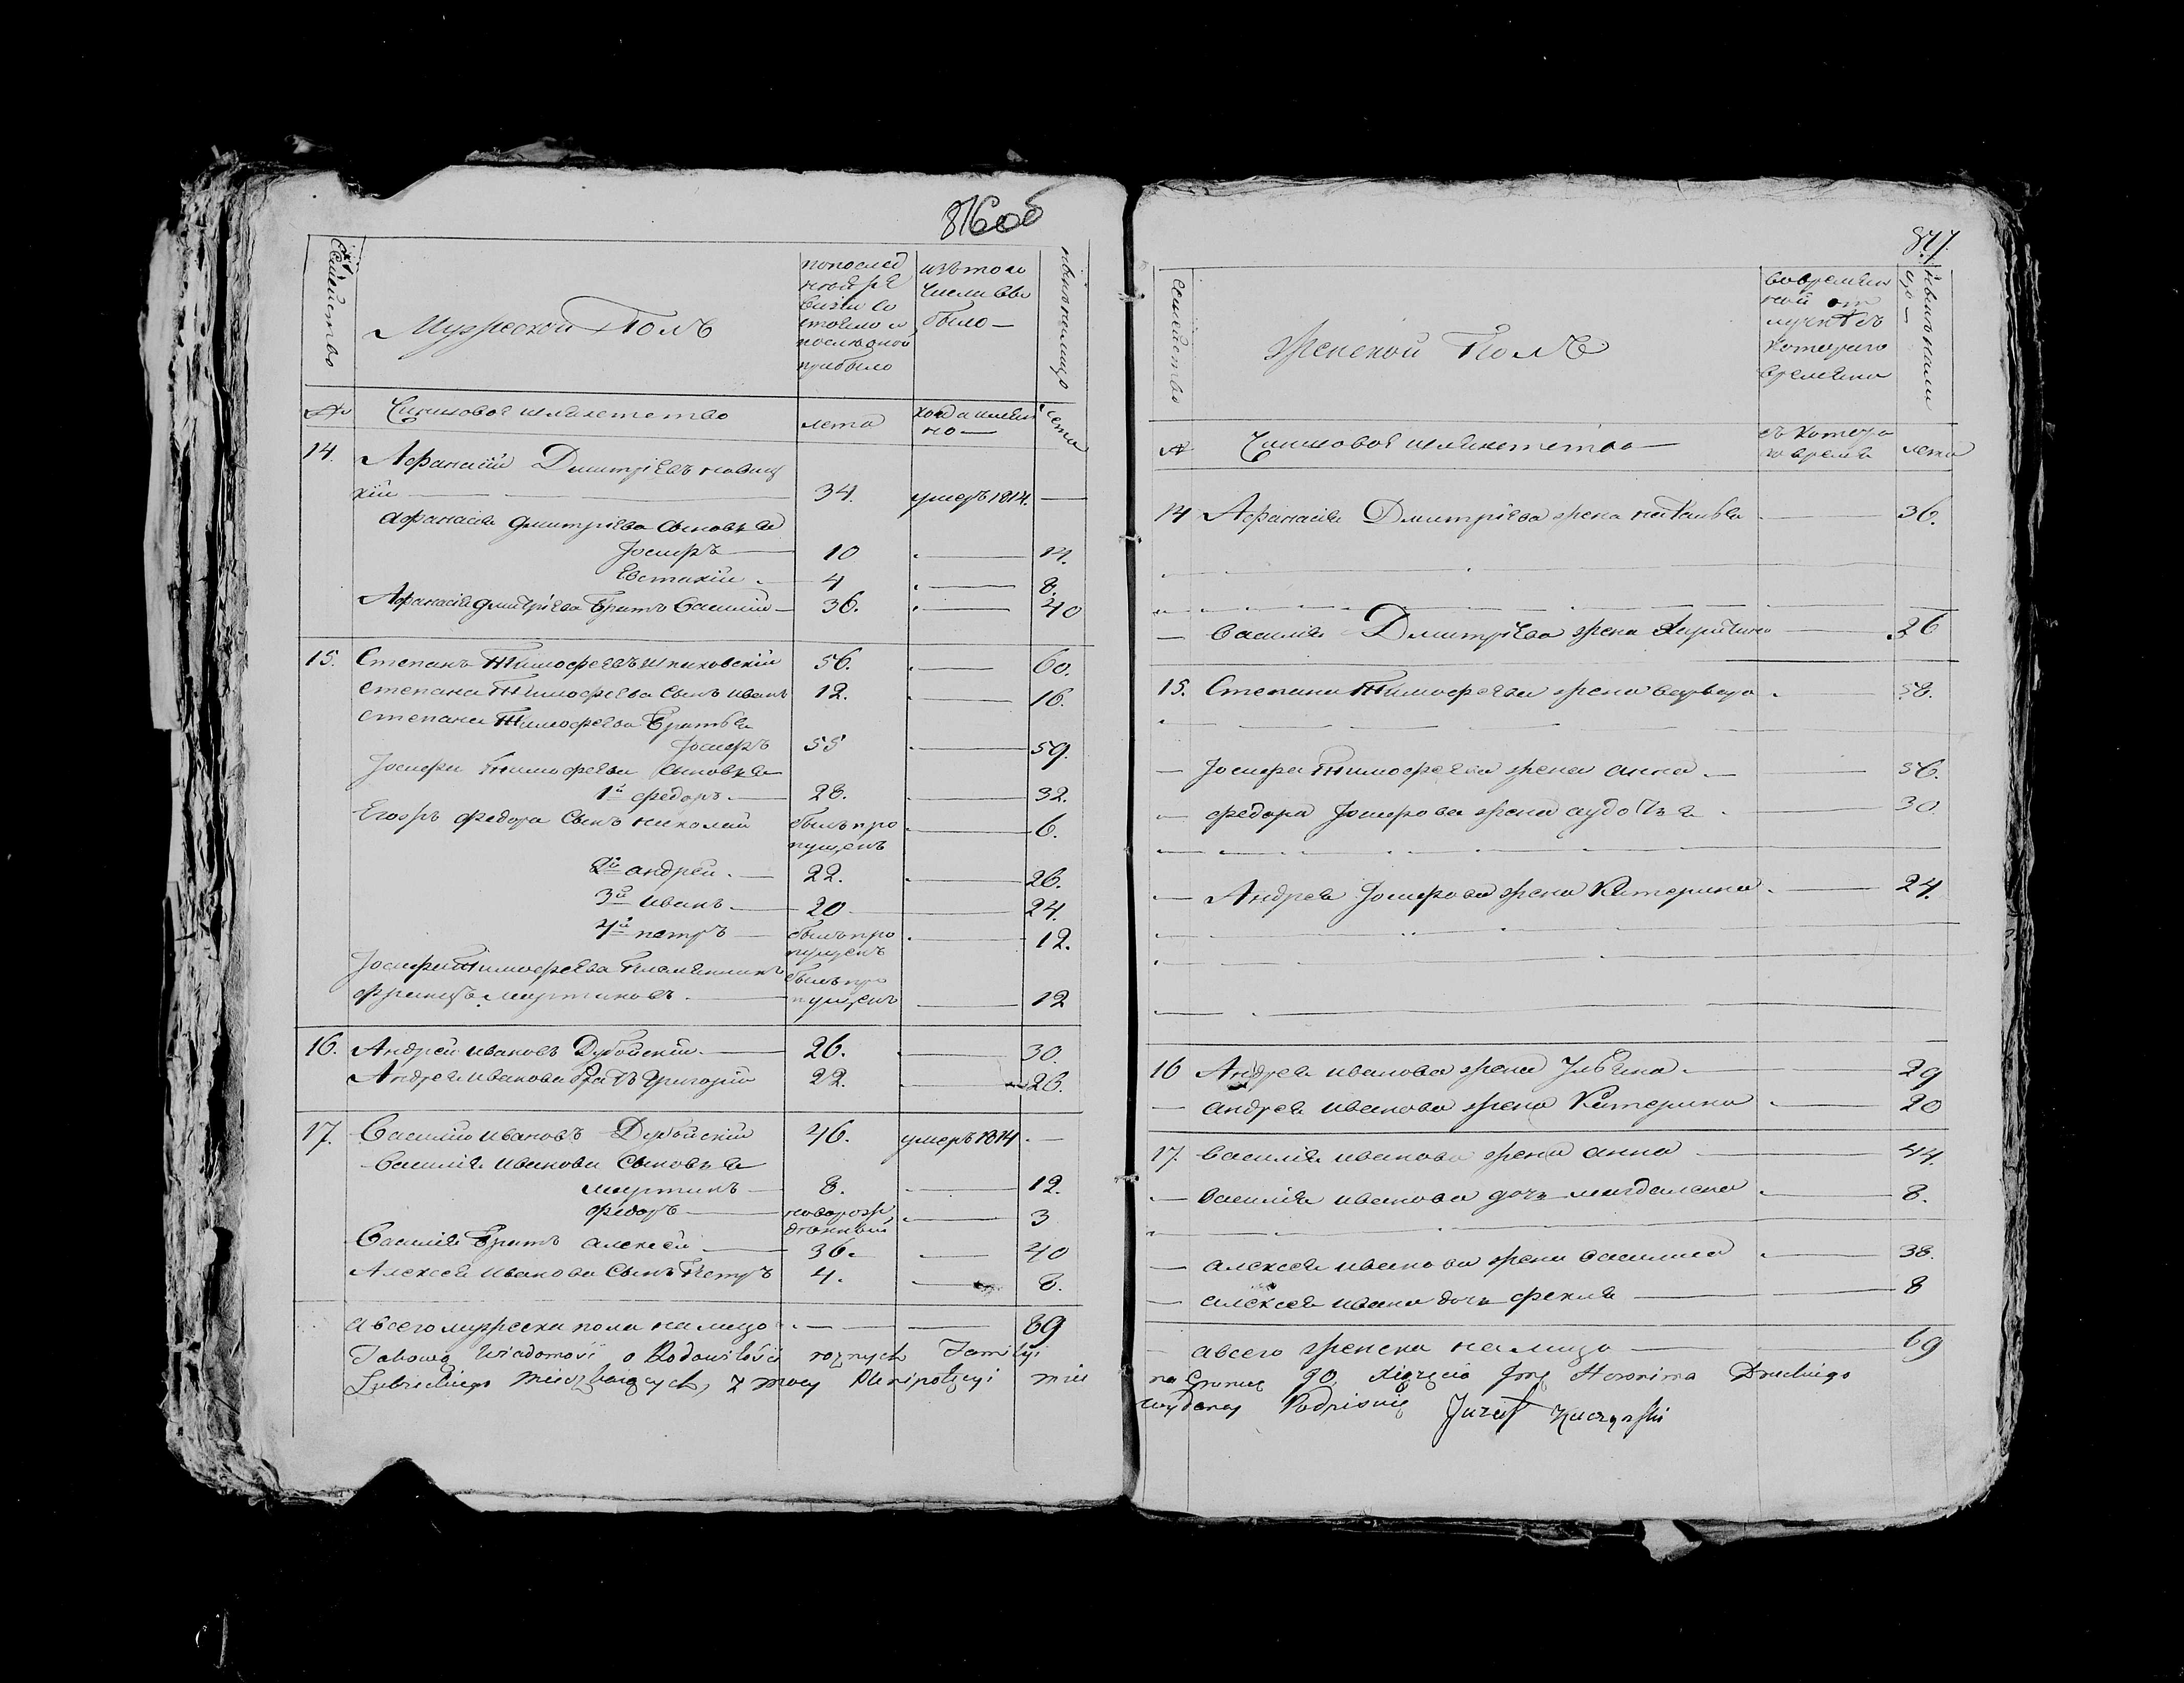 876об
Семейство
Мужеской Полъ
попослед
ней ре
визіи со
стояло и
после оной
прибыло
изъ того
числа вы
было —
ныне налицо
№
Чиншовое шляхетство
лета
когда имен
но —
лета
14. Афанасій Дмитріевъ новиц
кій — 34. умеръ 1814. —
Афанасія Дмитріева сыновья
Іосифъ — 10 — 14.
Евстахій — 4 — 8.
Афанасія Дмитріева Братъ Василій — 36. — 40
15. Степанъ Тимофеевъ Шпаковскій 56. — 60.
Степана Тимофеева Сынъ иванъ 12. — 16.
Степана Тимофеева Братья
Іосифъ 55 — 59.
Іосифа Тимофеева Сыновья
1й федоръ — 28. — 32.
Егоръ федора Сынъ николай былъ про — 6.
пущенъ
2й андрей — 22. — 26.
3й иванъ — 20 — 24.
4й петръ — былъ про — 12.
пущенъ
Іосифа Тимофеева Племянникъ былъ про
Францъ Мартиновъ — пущенъ — 12
16. Андрей ивановъ Дубойскій — 26. — 30.
Андрея иванова братъ Григорій 22. — 26.
17. Василій ивановъ Дубойскій 46. умеръ 1814. —
Василія иванова Сыновья
мартинъ — 8. — 12.
федоръ — новорож — 3
денный
Василія Братъ алексей — 36. — 40
Алексея иванова Сынъ Петръ 4. — 8.
а всего мужеска пола на лицо — 89
Takową Wiadomość o Rodowitości roznych Familyi
mieszkaiących, z mocy Plenipotęcyi mnie
877.
Семейство
Женской Полъ
во времен
ной от
лучке съ
котораго
времени
ныне нали
цо —
№
Чиншовое шляхетство —
съ котора
го время
лета
14 Афанасія Дмитріева жена наталья — 36.
— Василія Дмитріева жена — 26
15. Степана Тимофеева жена варвара — 58.
— Іосифа Тимофеева жена анна — 56.
— федора Іосифова жена аудотья — 30.
— Андрея Іосифова жена Катерина — 24.
16 Андрея иванова жена Ульяна — 29
— андрея иванова жена Катерина — 20
17. Василія иванова жена анна — 44.
— Василія иванова дочь магдалена — 8.
— алексея иванова жена василиса — 38.
— алексея ивана дочь фекля — 8
— а всего женска на лицо — 69
na Xięzęcia Hieronima Druckiego
wydaney Podpisuię Jozef